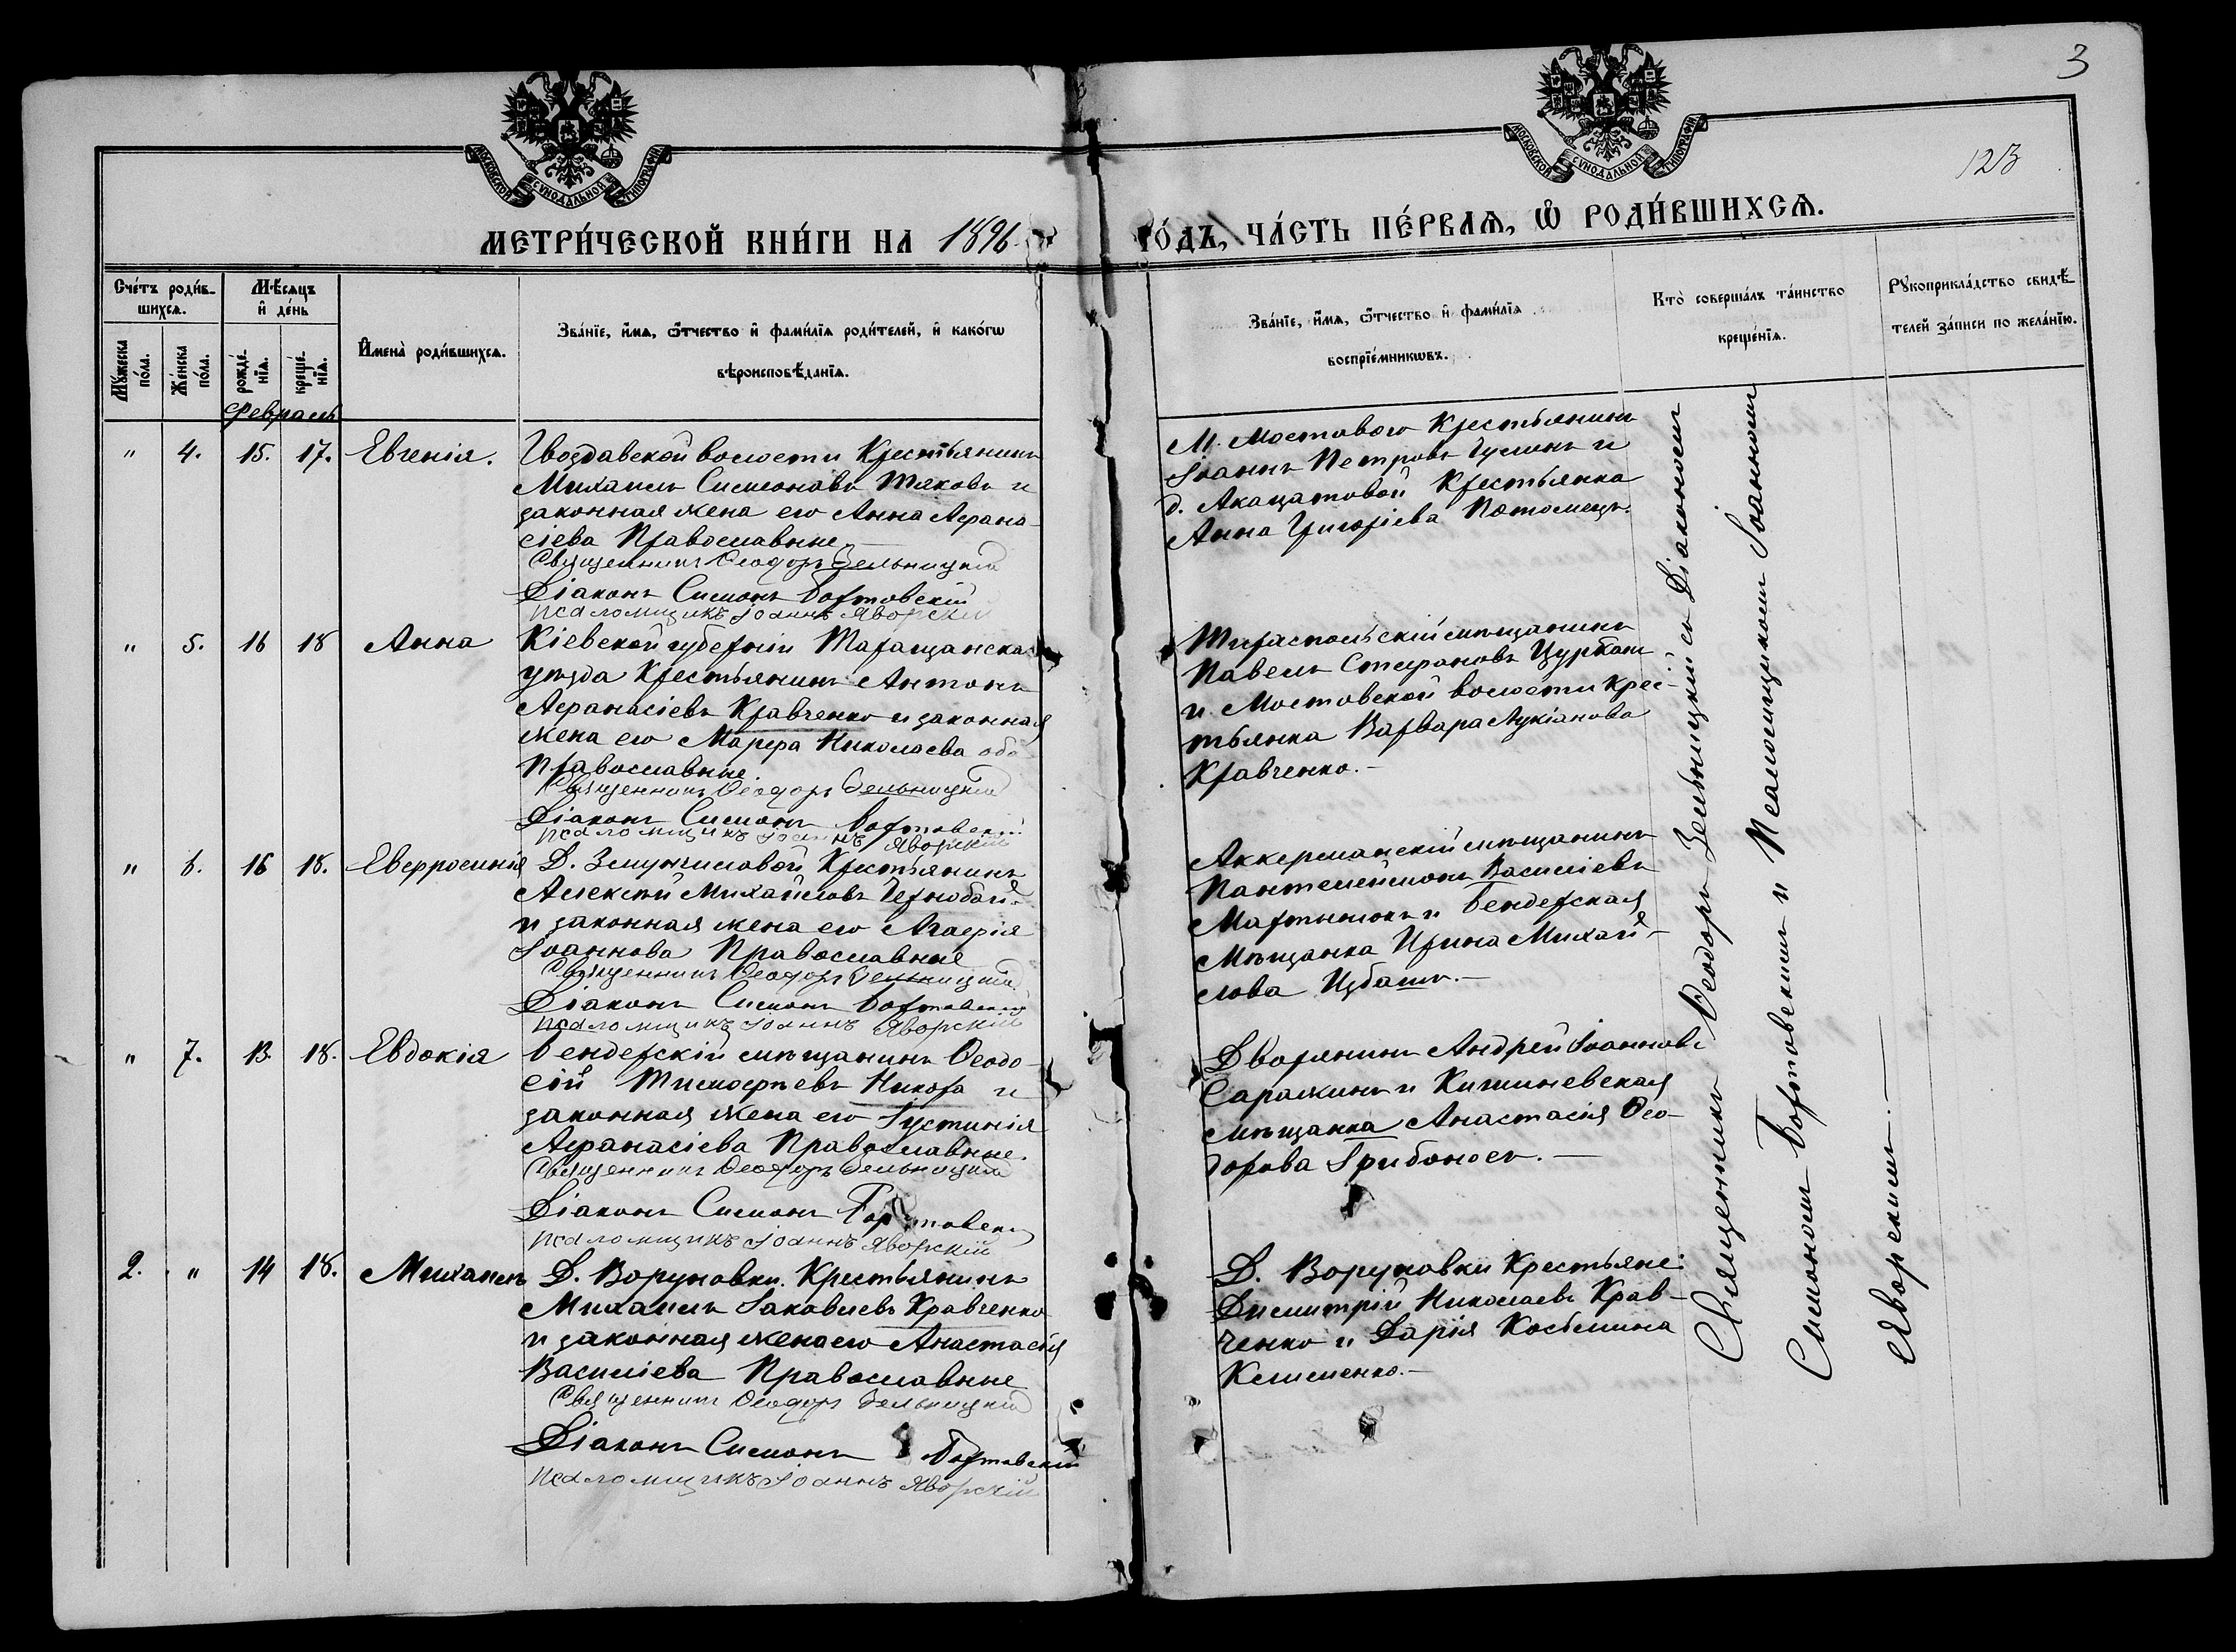 3
123
МОСКОВСКОЙ СѴНОДАЛЬНОЙ ТИПОГРАФІИ
МОСКОВСКОЙ СѴНОДАЛЬНОЙ ТИПОГРАФІИ
МЕТРИ́ЧЕСКОЙ КНИ́ГИ НА 1896
ГО́ДЪ, ЧА́СТЬ ПЕ́РВАѦ, Ѡ РОДИ́ВШИХСѦ.
Сче́тъ роди́в-
шихсѧ.
Мѣ́сѧцъ
и҆ де́нь
Мꙋ́жеска
по́ла.
Же́нска
по́ла.
рожде́-
нїѧ.
креще́-
нїѧ.
И҆мена̀ роди́вшихсѧ.
Зва́нїе, и҆́мѧ, ѻ҆́тчество и҆ фами́лїѧ роди́телей, и҆ како́гѡ
вѣроисповѣ́данїѧ.
Зва́нїе, и҆́мѧ, ѻ҆́тчество и҆ фами́лїѧ
воспрїе́мникѡвъ.
Кто̀ соверша́лъ та́инство
креще́нїѧ.
Рꙋкоприкла́дство свидѣ́-
телей за́писи по жела́нїю.
Февраль
" 4. 15. 17. Евгенія.
Гвоздавской волости Крестьянинъ
Михаилъ Симеоновъ Тяковъ и
законная жена его Анна Афана-
сіева Православные.
Священникъ Ѳеодоръ Зельницкій
Діаконъ Симонъ Бортовскій
псаломщикъ Іоаннъ Яворскій
М. Мостового Крестьянинъ
Іоаннъ Петровъ и
д. Акацатовой Крестьянка
Анна Григоріева Потомецъ.
" 5. 16 18 Анна
Кіевской губерніи Таращанска
уѣзда Крестьянинъ Антонъ
Афанасіевъ Кравченко и законная
жена его Марфа Николаева оба
Православные.
Священникъ Ѳеодоръ Зельницкій
Діаконъ Симонъ Бортовскій
псаломщикъ Іоаннъ Яворскій
Тираспольскій мѣщанинъ
Павелъ Стефановъ Цурбан
и Мостовской волости Крес-
тьянка Варвара Лукіанова
Кравченко.-
" 6. 16 18. Евфросинія
Д. Крестьянинъ
Алексѣй Михайловъ Чернобай
и законная жена его Агафія
Іоаннова Православные
Священникъ Ѳеодоръ Зельницкій
Діаконъ Симонъ Бортовскій
псаломщикъ Іоаннъ Яворскій
Аккерманскій мѣщанинъ
Пантелеймонъ Василіевъ
Мартынюкъ и Бендерская
Мѣщанка Ирина Михай-
лова Избашъ.-
" 7. 13. 18. Евдокія
Бендерскій мѣщанинъ Ѳеодо-
сій Тимофѣевъ Никора и
законная жена его Іустинія
Афанасіева Православные.
Священникъ Ѳеодоръ Зельницкій
Діаконъ Симонъ Бортовскій
псаломщикъ Іоаннъ Яворскій
Дворянинъ Андрей Іоанновъ
Саражинъ и Кишиневская
мѣщанка Анастасія Ѳео-
дорова Грибоносъ.-
2. " 14 18. Михаилъ
Д. Воруновки. Крестьянинъ
Михаилъ Іаковлевъ Кравченко
и законная жена его Анастасія
Василіева Православные
Священникъ Ѳеодоръ Зельницкій
Діаконъ Симонъ Бортовскій
псаломщикъ Іоаннъ Яворскій
Д. Воруновки Крестьяне:
Димитрій Николаевъ Крав-
ченко и Дарія Косьмина
Клименко.-
Священникъ Ѳеодоръ Зельницкій съ Діакономъ
Симономъ Бортовскимъ и Псаломщикомъ Іоанномъ
Яворскимъ.-